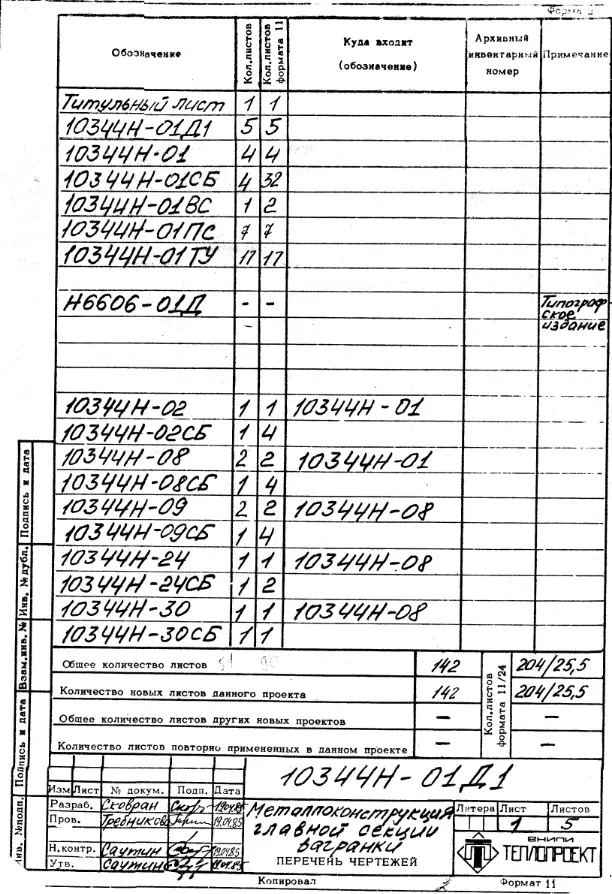 Обозначение
Кол.листов
Кол.листов формата 11
Куда входит
(обозначение)
Архивный
инвентарный
номер
Примечание
Титульный лист 1 1
10344Н-01Д1 5 5
10344Н-01 4 4
10344Н-01СБ 4 32
10344Н-01ВС 1 2
10344Н-01ПС 7 7
10344Н-01ТУ 17 17
Н6606-01Д - - Типограф-
ское
издание
10344Н-02 1 1 10344Н-01
10344Н-02СБ 1 4
10344Н-08 2 2 10344Н-01
10344Н-08СБ 1 4
10344Н-09 2 2 10344Н-08
10344Н-09СБ 1 4
10344Н-24 1 1 10344Н-08
10344Н-24СБ 1 2
10344Н-30 1 1 10344Н-08
10344Н-30СБ 1 1
Общее количество листов 142 204/25,5
Количество новых листов данного проекта 142 204/25,5
Общее количество листов других новых проектов — —
Количество листов повторно примененных в данном проекте — —
Кол.листов
формата 11/24
Подпись и дата
Инв. № дубл.
Взам.инв. №
Подпись и дата
Инв. № подл.
10344Н-01Д1
Изм Лист № докум. Подп. Дата
Разраб. Сковран
Пров. Гребникова 19.04.85
Н.контр. Саутин 19.04.85
Утв. Саутин
Металлоконструкция
главной секции
вагранки
ПЕРЕЧЕНЬ ЧЕРТЕЖЕЙ
Литера Лист Листов
1 5
ВНИПИ
ТЕПЛОПРОЕКТ
Копировал
Формат 11